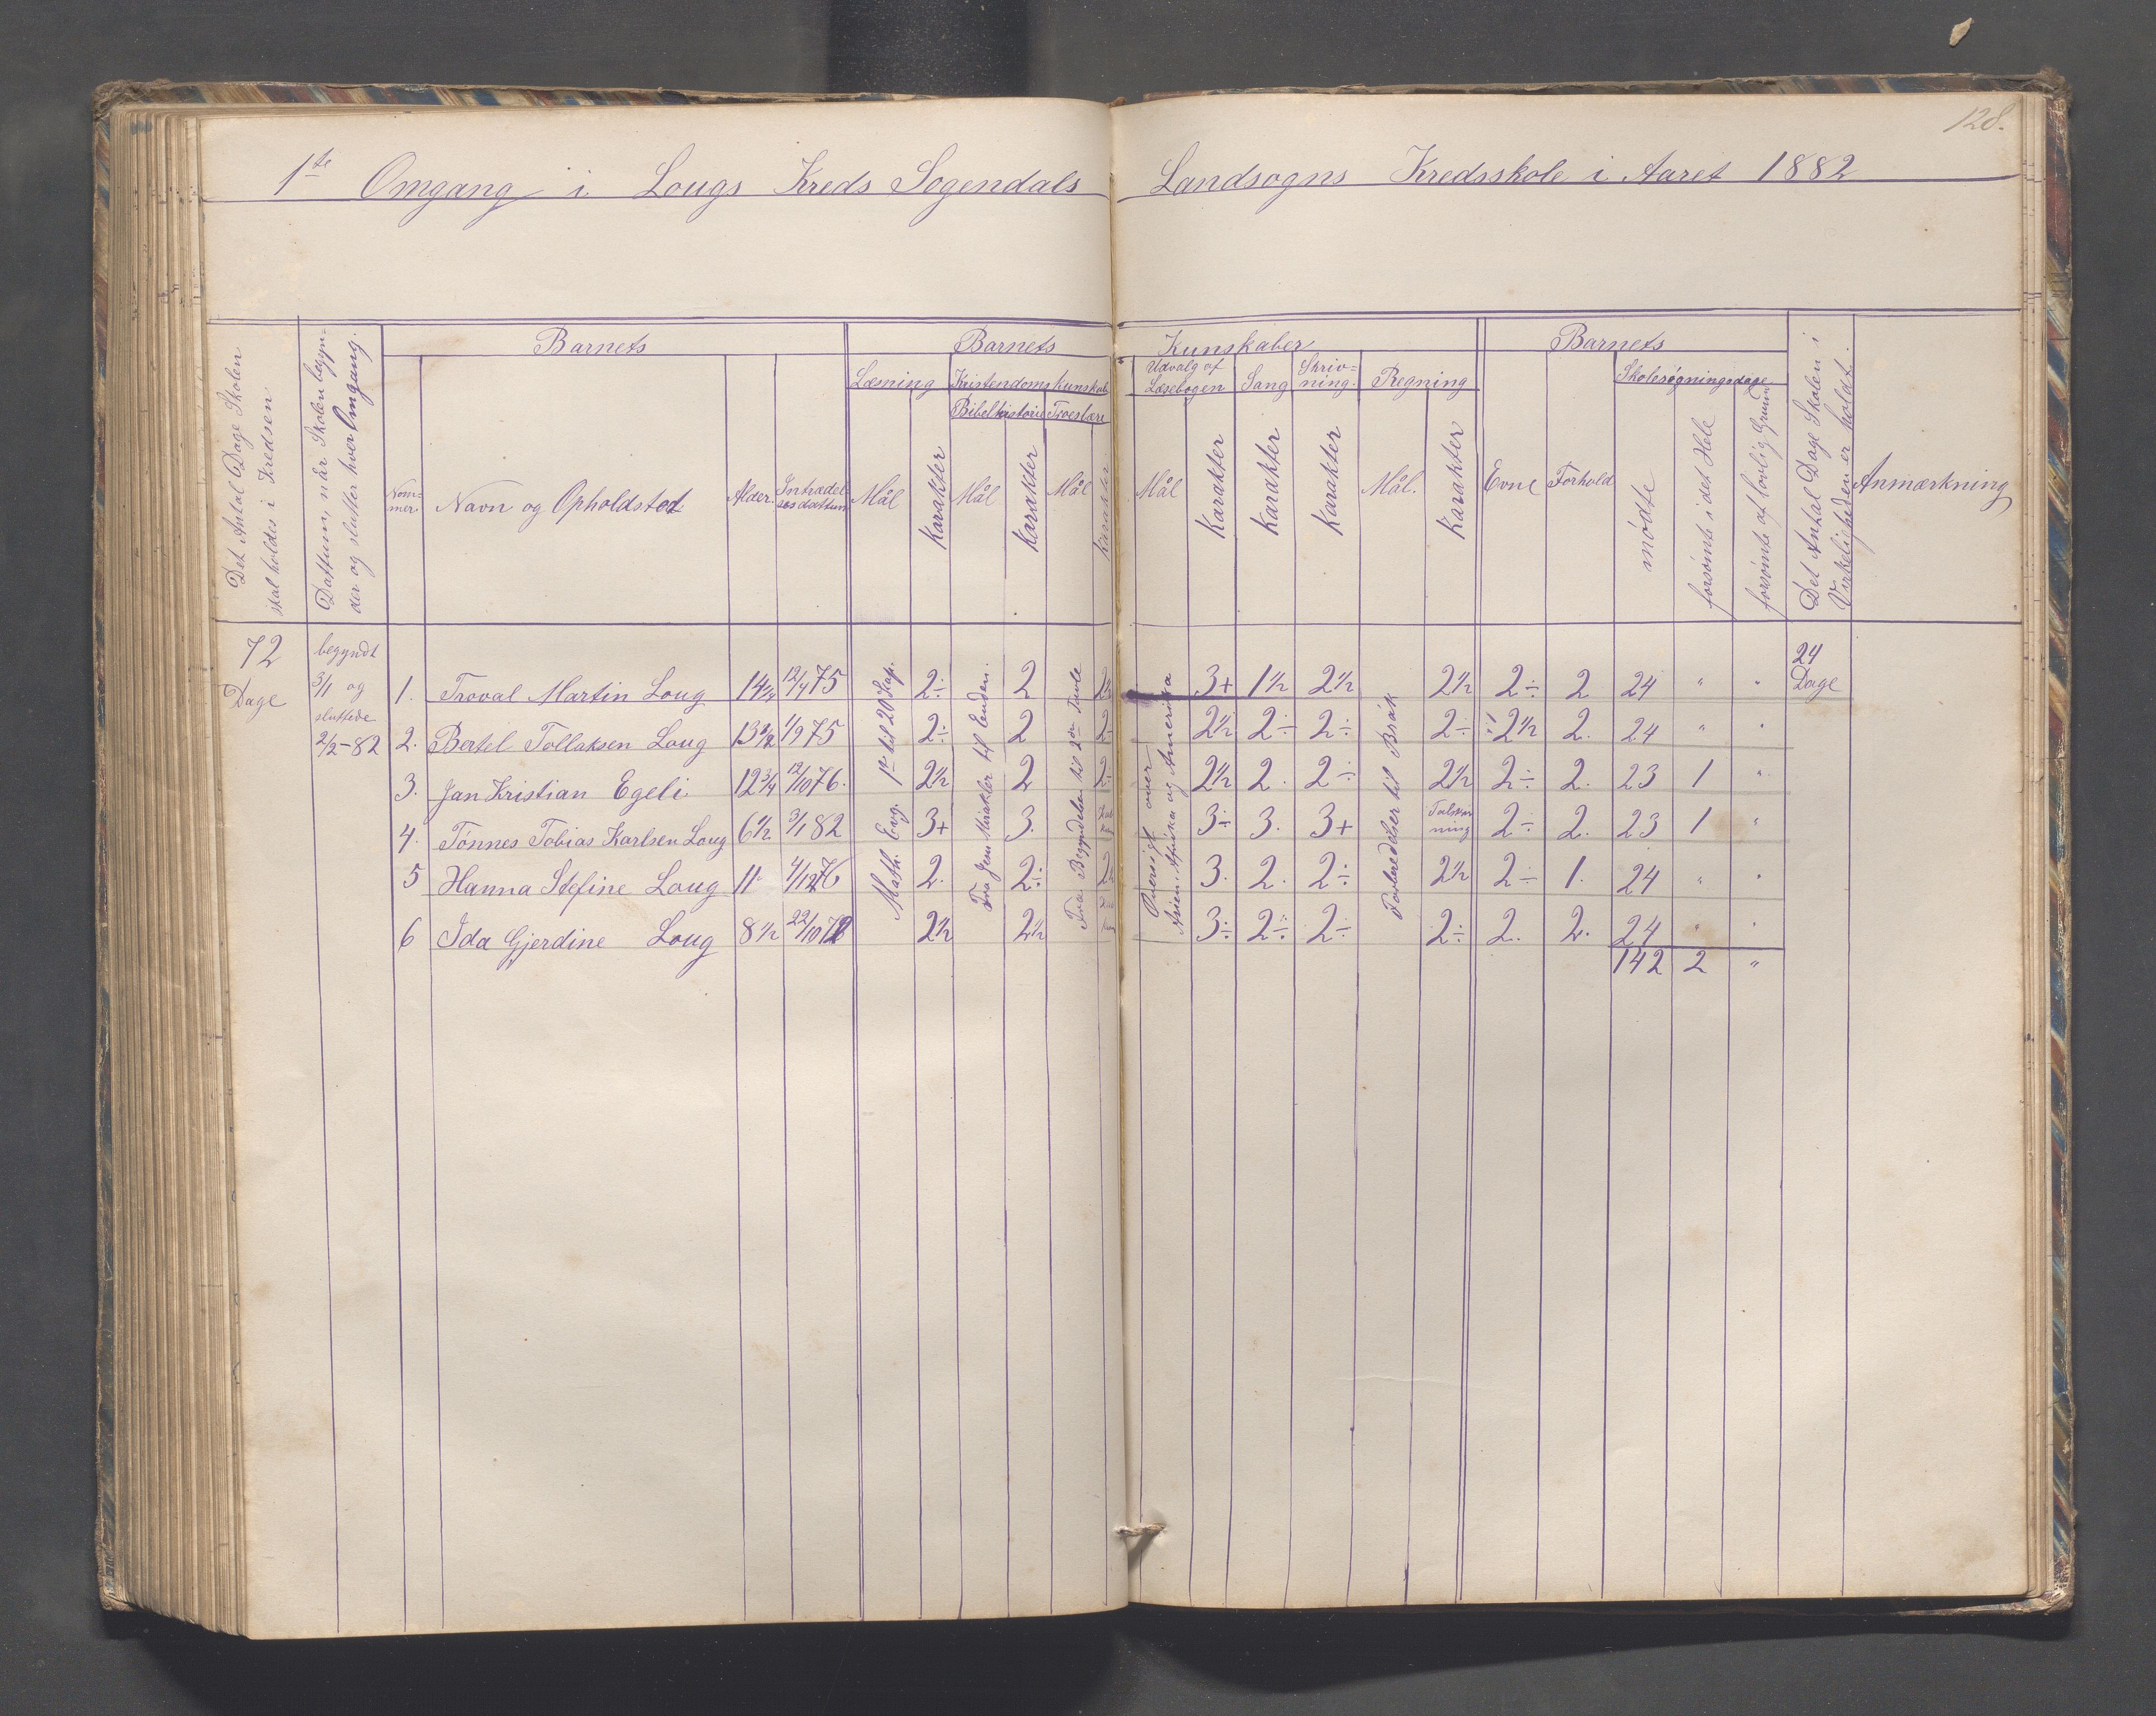 128.
1te Omgang i Lougs Kreds Sogendals Landsogns Kredsskole i Aaret 1882
Det Antal Dage Skolen skal holdes i Kredsen
Dattum, når Skolen begynder og slutter hver Omgang.
Barnets
Nommer
Navn og Opholdsted
Alder
Intrædelsesdattum
Barnets Kunskaber
Læsning
Mål
Karakter
Kristendomskunskab
Bibelhistorie
Mål
Karakter
Troeslære
Mål
Karakter
Udvalg af Læsebogen
Mål
Karakter
Sang
Karakter
Skrivning.
Karakter
Regning
Mål.
Karakter
Barnets
Evne
Forhold
Skolesøgningsdage
mødte
forsømte i det Hele
forsømte af lovlig Grund
Det Antal Dage Skolen i Virkeligheden er holdt.
Anmærkning
72 Dage
begyndt 3/1 og sluttede 2/2-82
Math. Evg. 1te til 20 Kap.
Fra Jesu Mirakler til Enden.
Fra Begyndelsen til 2den Tavle
Oversigt over Asien Afrika og Amerika
Forberedelser til Brøk
24 Dage
1. Troval Martin Loug 14 1/4 12/4 75 2÷ 2 3+ 1½ 2½ 2½ 2÷ 2 24 " "
2. Bertel Tollaksen Loug 13½ 1/9 75 2÷ 2 2÷ 2½ 2÷ 2÷ 2÷ 2½ 2. 24 " "
3. Jan Kristian Egeli 12¾ 12/10 76. 2½ 2 2÷ 2½ 2. 2÷ 2½ 2÷ 2. 23 1 "
4. Tønnes Tobias Karlsen Loug 6½ 3/1 82 3+ 3. 3÷ 3. 3+ 2÷ 2. 23 1 "
5 Hanna Stefine Loug 11 4/12 76 2. 2÷ 2½ 3. 2. 2÷ 2½ 2÷ 1. 24 " "
6 Ida Gjerdine Loug 8½ 22/10 2½ 2½ 3÷ 2÷ 2÷ 2÷ 2. 2. 24 " "
142 2 "